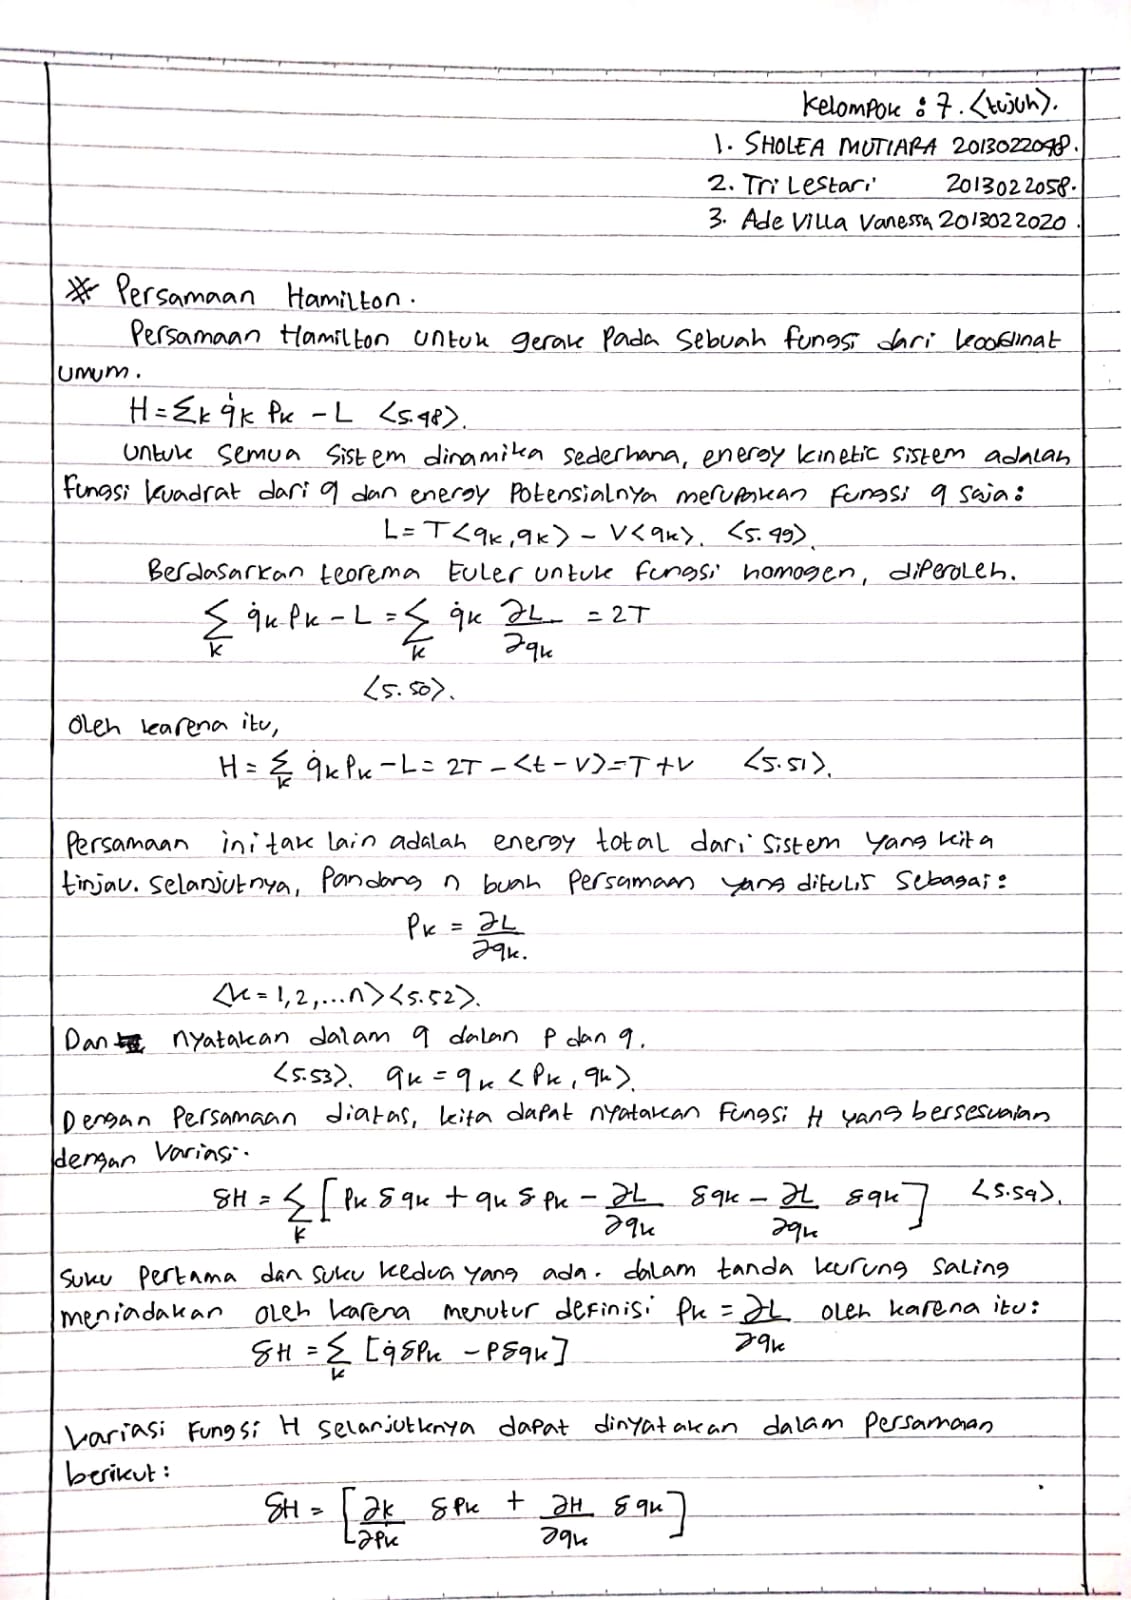 Kelompok : 7. <tujuh>.
1. SHOLEA MUTIARA 2013022048.
2. Tri Lestari 2013022058.
3. Ade Villa Vanessa 2013022020.
* Persamaan Hamilton.
Persamaan Hamilton untuk gerak Pada Sebuah fungsi dari koordinat
umum.
H = Σk q̇k Pk - L <5.48>.
untuk semua Sistem dinamika sederhana, energy kinetic sistem adalah
fungsi kuadrat dari q dan energy Potensialnya merupakan fungsi q saja:
L = T <qk, qk> - V<qk>. <5.49>.
Berdasarkan teorema Euler untuk fungsi homogen, diperoleh.
Σk q̇k Pk - L = Σk q̇k ∂L/∂qk = 2T
<5.50>.
Oleh karena itu,
H = Σk q̇k Pk - L = 2T - <t - V> = T + V <5.51>.
Persamaan ini tak lain adalah energy total dari sistem yang kita
tinjau. Selanjutnya, Pandang n buah Persamaan yang ditulis sebagai:
Pk = ∂L/∂qk.
<k = 1, 2, ... n> <5.52>.
Dan nyatakan dalam q dalan p dan q.
<5.53>. qk = qk < Pk, qk>.
Dengan Persamaan diatas, kita dapat nyatakan fungsi H yang bersesuaian
dengan Variasi.
δH = Σk [Pk δqk + qk δPk - ∂L/∂qk δqk - ∂L/∂qk δqk] <5.54>.
Suku pertama dan suku kedua yang ada. dalam tanda kurung saling
meniadakan oleh karena menutur definisi Pk = ∂L/∂qk oleh karena itu:
δH = Σk [q̇δPk - Pδqk]
Variasi Fungsi H Selanjutknya dapat dinyatakan dalam persamaan
berikut:
δH = [∂k/∂Pk δPk + ∂H/∂qk δqk]